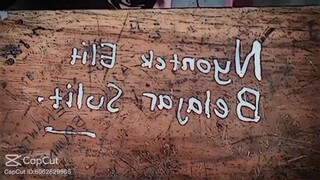 Nyontek Elit
Belajar Sulit.
CapCut
CapCut ID:6962629965